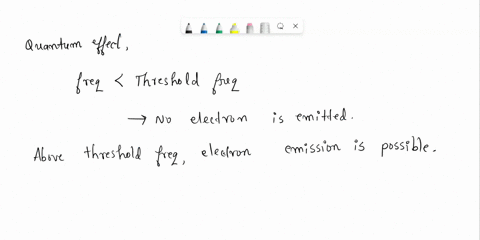 Quantum effect,
freq < Threshold freq
→ No electron is emitted.
Above threshold freq, electron emission is possible.